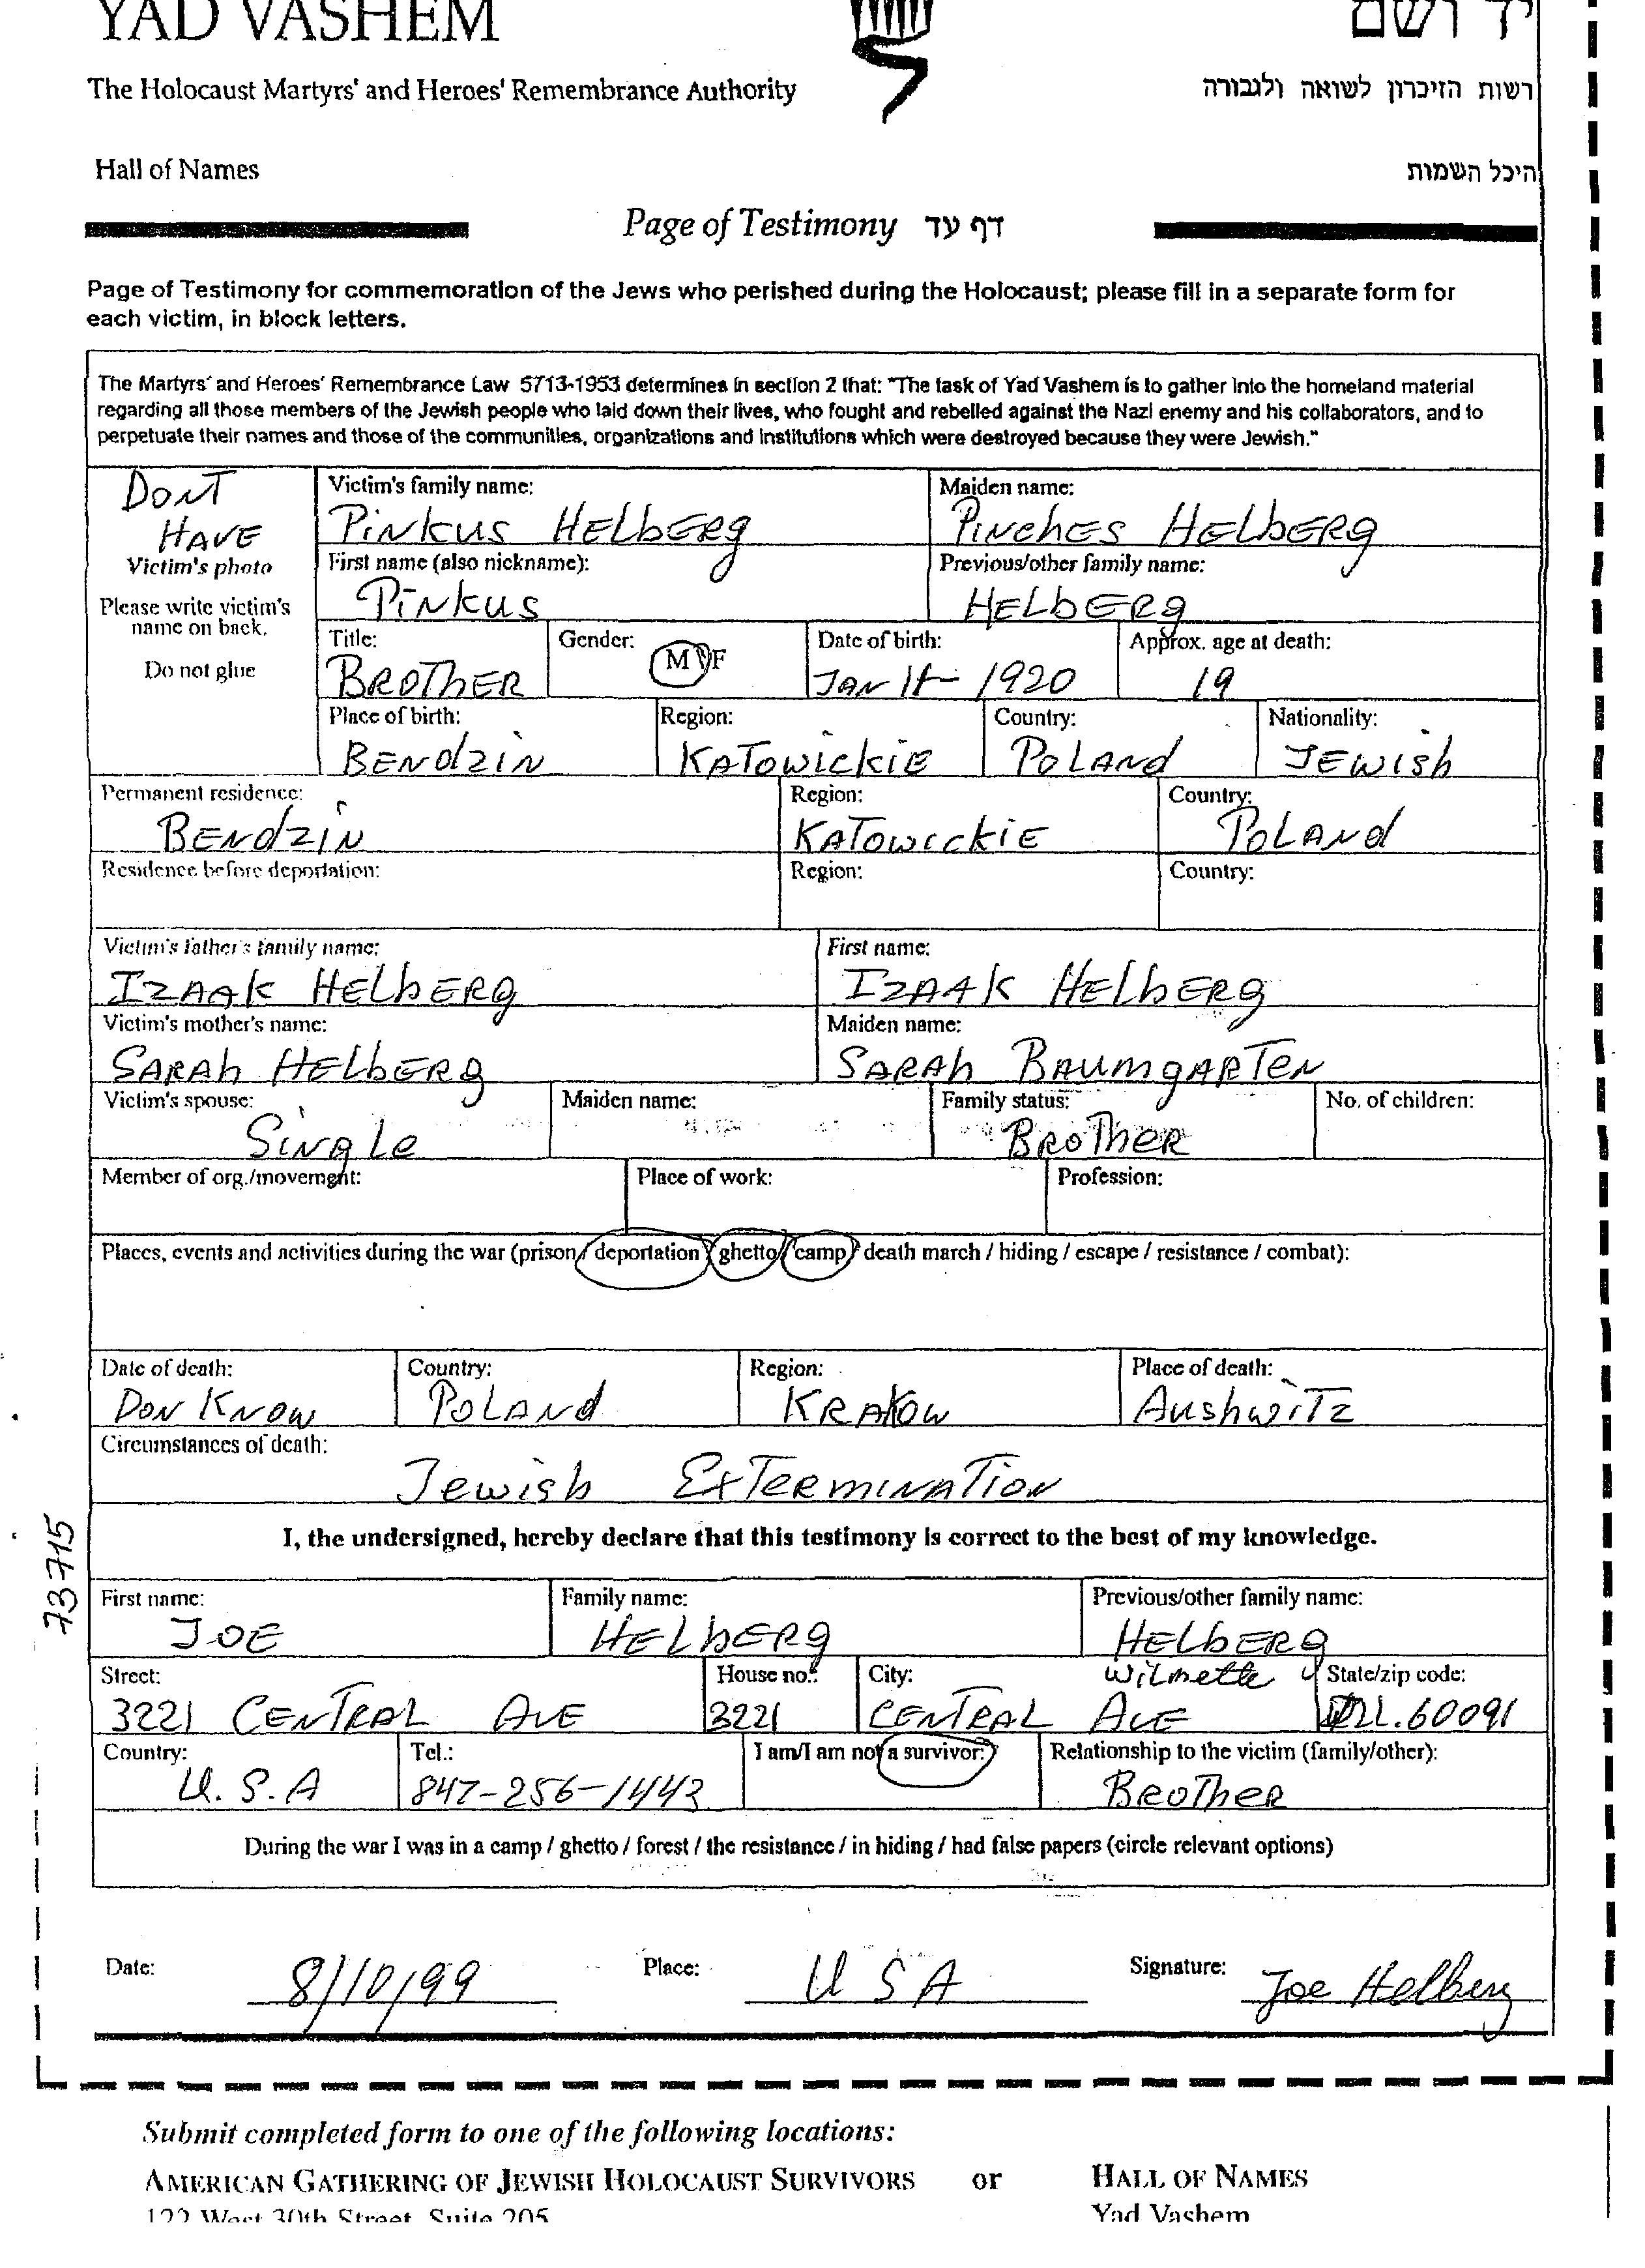 YAD VASHEM
יד ושם
The Holocaust Martyrs' and Heroes' Remembrance Authority
רשות הזיכרון לשואה ולגבורה
Hall of Names
היכל השמות
Page of Testimony דף עד
Page of Testimony for commemoration of the Jews who perished during the Holocaust; please fill in a separate form for
each victim, in block letters.
The Martyrs' and Heroes' Remembrance Law 5713-1953 determines in section 2 that: "The task of Yad Vashem is to gather into the homeland material
regarding all those members of the Jewish people who laid down their lives, who fought and rebelled against the Nazi enemy and his collaborators, and to
perpetuate their names and those of the communities, organizations and institutions which were destroyed because they were Jewish."
DONT
HAVE
Victim's photo
Please write victim's
name on back.
Do not glue
Victim's family name: Maiden name:
PINKUS HELBERG PINCHES HELBERG
First name (also nickname): Previous/other family name:
PINKUS HELBERG
Title: Gender: M / F Date of birth: Approx. age at death:
BROTHER JAN 1920 19
Place of birth: Region: Country: Nationality:
BENDZIN KATOWICKIE POLAND JEWISH
Permanent residence: Region: Country:
BENDZIN KATOWICKIE POLAND
Residence before deportation: Region: Country:
Victim's father's family name: First name:
IZAAK HELBERG IZAAK HELBERG
Victim's mother's name: Maiden name:
SARAH HELBERG SARAH BAUMGARTEN
Victim's spouse: Maiden name: Family status: No. of children:
SINGLE BROTHER
Member of org./movement: Place of work: Profession:
Places, events and activities during the war (prison / deportation / ghetto / camp / death march / hiding / escape / resistance / combat):
Date of death: Country: Region: Place of death:
DON KNOW POLAND KRAKOW AUSHWITZ
Circumstances of death:
JEWISH EXTERMINATION
I, the undersigned, hereby declare that this testimony is correct to the best of my knowledge.
73715
First name: Family name: Previous/other family name:
JOE HELBERG HELBERG
Street: House no.: City: Wilmette State/zip code:
3221 CENTRAL AVE 3221 CENTRAL AVE ILL. 60091
Country: Tel.: I am/I am not a survivor: Relationship to the victim (family/other):
U.S.A 847-256-1443 BROTHER
During the war I was in a camp / ghetto / forest / the resistance / in hiding / had false papers (circle relevant options)
Date: 8/10/99 Place: USA Signature: Joe Helberg
Submit completed form to one of the following locations:
AMERICAN GATHERING OF JEWISH HOLOCAUST SURVIVORS or HALL OF NAMES
122 West 30th Street, Suite 205 Yad Vashem